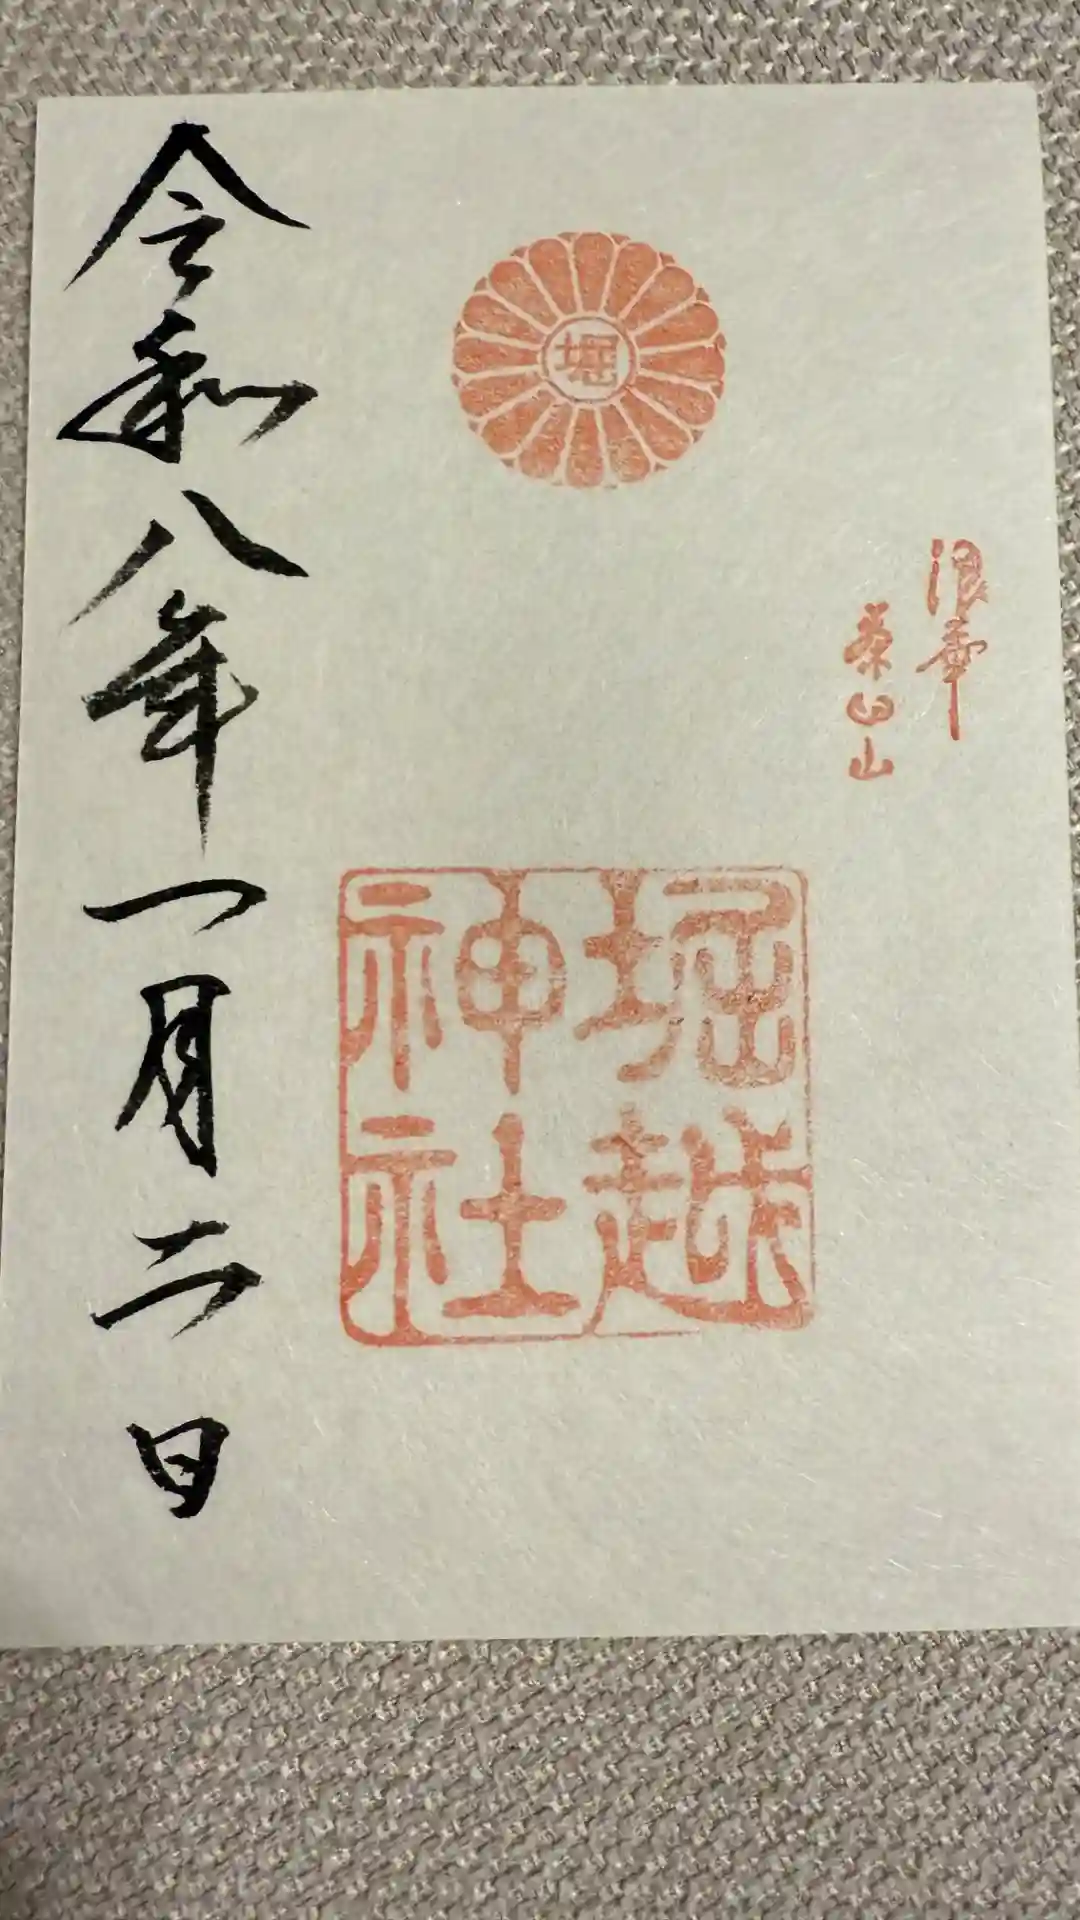 浪華
茶臼山
堀
堀越
神社
令和八年一月二日